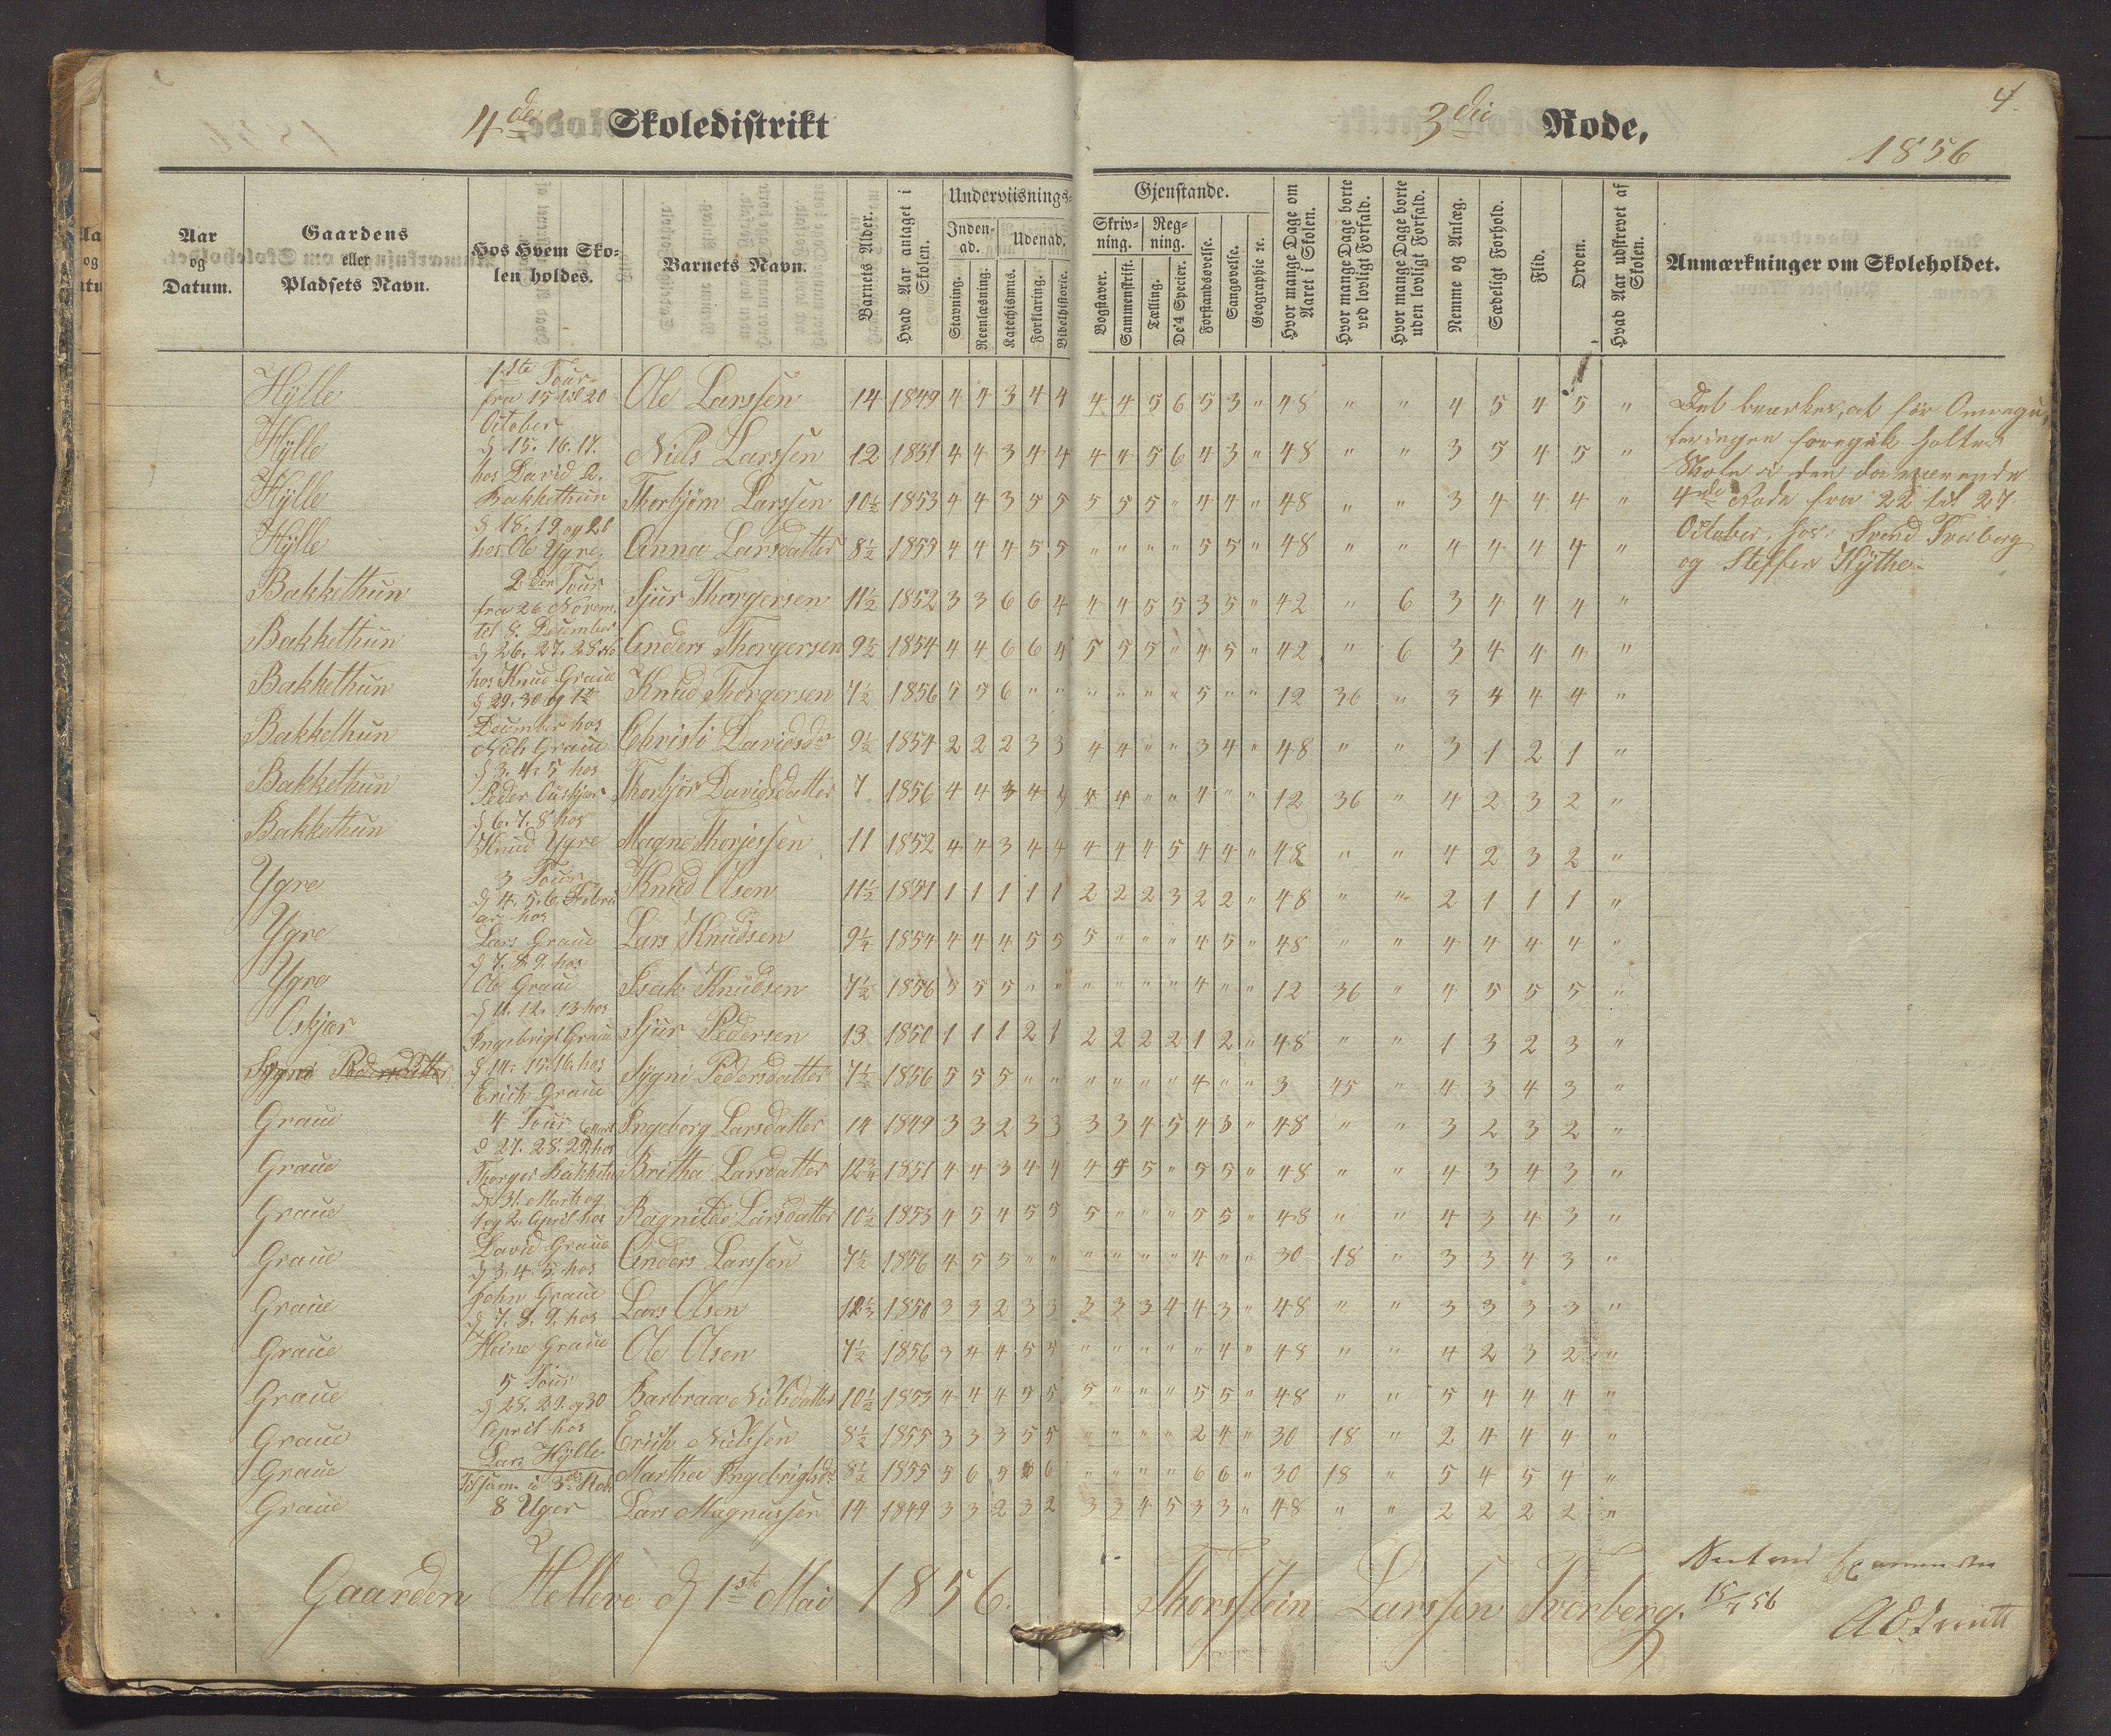 4de Skoledistrikt
3die Rode,
4.
1856
Aar og Datum.
Gaardens eller Pladsets Navn.
Hos Hvem Skolen holdes.
Barnets Navn.
Barnets Alder.
Hvad Aar antaget i Skolen.
Underviisnings-
Gjenstande.
Inden-ad.
Udenad.
Skriv-ning.
Reg-ning.
Stavning.
Reenlæsning.
Katechismus.
Forklaring.
Bibelhistorie.
Bogstaver.
Sammenskrift.
Tælling.
De 4 Species.
Forstandsøvelse.
Sangøvelse.
Geographie ic.
Hvor mange Dage om Aaret i Skolen.
Hvor mange Dage borte ved lovligt Forfald.
Hvor mange Dage borte uden lovligt Forfald.
Nemme og Anlæg.
Sædeligt Forhold.
Flid.
Orden.
Hvad Aar udskrevet af Skolen.
Anmærkninger om Skoleholdet.
Hÿlle Ole Larssen 14 1849 4 4 3 4 4 4 4 5 6 5 3 " 48 " " 4 5 4 5 "
Hÿlle Niels Larssen 12 1851 4 4 3 4 4 4 4 5 6 4 3 " 48 " " 3 5 4 5 "
Hÿlle Thorbjörn Larssen 10½ 1853 4 4 3 5 5 5 5 5 " 4 4 " 48 " " 3 4 4 4 "
Hÿlle Anna Larsdatter 8½ 1855 4 4 4 5 5 " " " " 5 5 " 48 " " 4 4 4 4 "
Bakkethun Sjur Thorgersen 11½ 1852 3 3 6 6 4 4 4 5 5 3 5 " 42 " 6 3 4 4 4 "
Bakkethun Anders Thorgersen 9½ 1854 4 4 6 6 4 5 5 5 " 4 5 " 42 " 6 3 4 4 4 "
Bakkethun Knud Thorgersen 7½ 1856 5 5 6 " " " " " " 5 " " 12 36 " 3 4 4 4 "
Bakkethun Christi Davidsdr 9½ 1854 2 2 2 3 3 4 4 " " 3 4 " 48 " " 3 1 2 1 "
Bakkethun Thorbjör Davidsdatter 7 1856 4 4 3 4 4 4 4 " " 4 " " 12 36 " 4 2 3 2 "
Bakkethun Magne Thorjessen 11 1852 4 4 3 4 4 4 4 4 5 4 4 " 48 " " 4 2 3 2 "
Ygre Knud Olsen 11½ 1851 1 1 1 1 1 2 2 2 3 2 2 " 48 " " 2 1 1 1 "
Ygre Lars Knudsen 9¼ 1854 4 4 4 5 5 5 " " " 4 5 " 48 " " 4 4 4 4 "
Ygre Isak Knudsen 7½ 1856 5 5 5 " " " " " " 4 " " 12 36 " 4 5 5 5 "
Oskjær Sjur Pedersen 13 1850 1 1 1 2 1 2 2 2 2 1 2 " 48 " " 1 3 2 3 "
Sygni Pedersdatter Sygni Pedersdatter 7½ 1856 5 5 5 " " " " " " 4 " " 3 45 " 4 3 4 3 "
Graue Ingeborg Larsdatter 14 1849 3 3 2 3 3 3 3 4 5 4 3 " 48 " " 3 2 3 2 "
Graue Britha Larsdatter 12¾ 1851 4 4 3 4 4 4 4 5 " 5 5 " 48 " " 4 3 4 3 "
Graue Ragnilde Larsdatter 10½ 1853 4 5 4 5 5 5 " " " 5 5 " 48 " " 4 3 4 3 "
Graue Anders Larssen 7½ 1856 4 5 5 " " " " " " 4 " " 30 18 " 3 3 4 3 "
Graue Lars Olsen 12⅓ 1850 3 3 2 3 3 3 3 3 4 4 3 " 48 " " 3 3 3 3 "
Graue Ole Olsen 7½ 1856 3 4 4 5 5 " " " " " 4 " 48 " " 4 2 3 2 "
Graue Barbraa Nielsdatter 10½ 1853 4 4 4 5 5 5 " " " 5 5 " 48 " " 5 4 4 4 "
Graue Erich Nielssen 8½ 1855 3 3 3 5 5 " " " " 2 4 " 30 18 " 2 4 4 4 "
Graue Martha Ingebrigtsdr 8½ 1855 5 6 5 6 6 " " " " 6 6 " 30 18 " 5 4 5 4 "
Graue Lars Magnussen 14 1849 3 3 2 3 2 3 3 4 5 3 3 " 48 " " 2 2 2 2 "
1ste Tour
fra 15 til 20
October
d 15. 16. 17.
hos David
Bakkethun
d 18. 19 og 20
hos Ole Ygre,
2den Tour
fra 26 Novem.
til 8. December
d 26. 27. 28
hos Knud Graue
d 29. 30 og 1te
December hos
Niels Graue
d 3. 4. 5 hos
Peder Ouskjær
d 6. 7. 8 hos
Knud Ygre
3 Tour
d 4. 5. 6. Februar
hos
Lars Graue
d 7. 8. 9. hos
Ole Graue
d 11. 12. 13 hos
Ingebrigt Graue
d 14. 15. 16. hos
Erich Graue
4 Tour
d 27. 28. 29. hos
Thorger Bakkethun
d 31. Marts og
1 og 2. April hos
David Graue
d 3. 4. 5. hos
John Graue
d 7. 8. 9. hos
Heine Graue
5 Tour
d 28. 29. og 30
April hos
Lars Hÿlle
Tilsam. i 3die Rode
8 Uger
Det bemærkes, at för Omregu-
leringen foregik holtes
Skole i den daværende
4de Rode fra 22 til 27
October, hos Svend Tverberg
og Steffen Kÿthe.
Gaarden Helleve d 1ste Mai 1856.
Thorstein Larssen Tverberg.
15/7 56